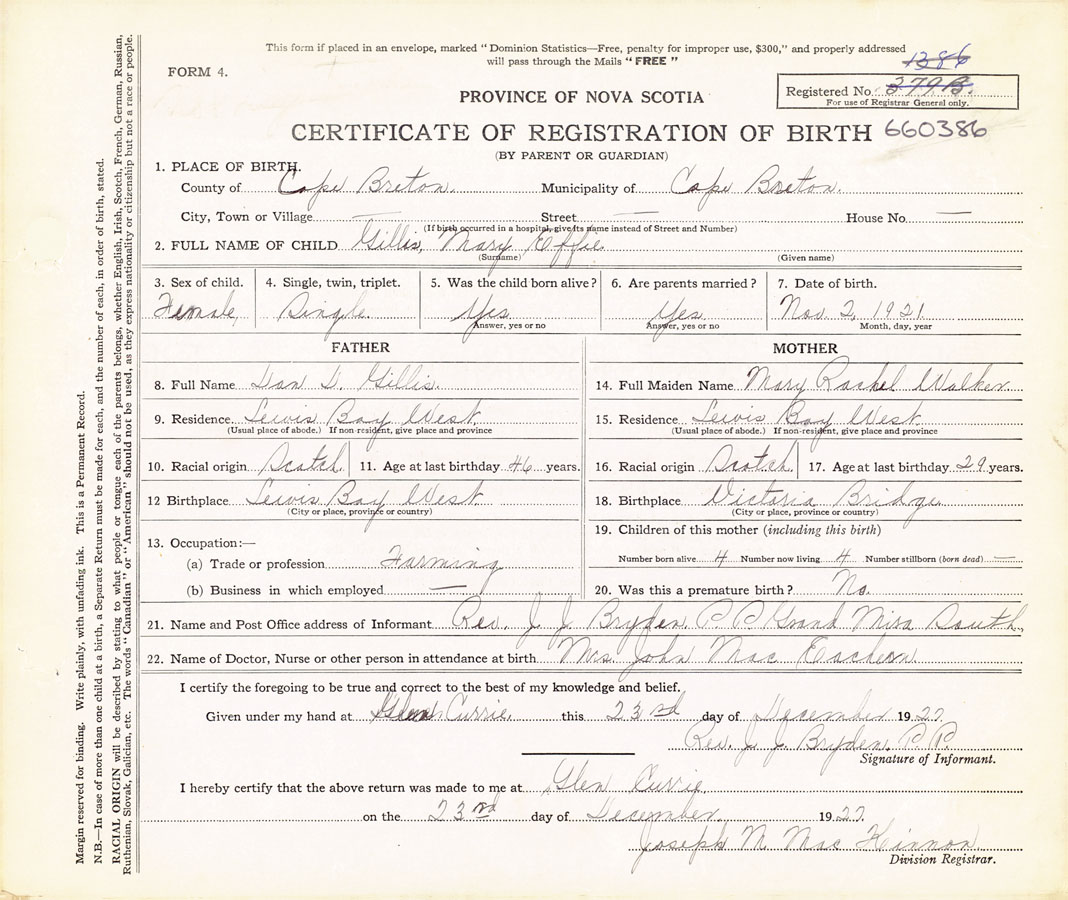 This form if placed in an envelope, marked "Dominion Statistics—Free, penalty for improper use, $300," and properly addressed
will pass through the Mails "FREE"
1386
FORM 4.
Registered No. 379B.
For use of Registrar General only.
PROVINCE OF NOVA SCOTIA
CERTIFICATE OF REGISTRATION OF BIRTH 660386
(BY PARENT OR GUARDIAN)
1. PLACE OF BIRTH.
County of Cape Breton. Municipality of Cape Breton.
City, Town or Village — Street — House No. —
(If birth occurred in a hospital, give its name instead of Street and Number)
2. FULL NAME OF CHILD Gillis, Mary Effie
(Surname) (Given name)
3. Sex of child. 4. Single, twin, triplet. 5. Was the child born alive? 6. Are parents married? 7. Date of birth.
Female Single. Yes Yes Nov. 2, 1921
Answer, yes or no Answer, yes or no Month, day, year
FATHER MOTHER
8. Full Name Dan D. Gillis. 14. Full Maiden Name Mary Rachel Walker
9. Residence Lewis Bay West. 15. Residence Lewis Bay West.
(Usual place of abode.) If non-resident, give place and province (Usual place of abode.) If non-resident, give place and province
10. Racial origin Scotch 11. Age at last birthday 46 years. 16. Racial origin Scotch 17. Age at last birthday 29 years.
12 Birthplace Lewis Bay West. 18. Birthplace Victoria Bridge
(City or place, province or country) (City or place, province or country)
19. Children of this mother (including this birth)
13. Occupation:—
(a) Trade or profession Farming Number born alive 4 Number now living 4 Number stillborn (born dead) —
(b) Business in which employed — 20. Was this a premature birth? No.
21. Name and Post Office address of Informant Rev. J. J. Bryden, P.P. Grand Mira South.
22. Name of Doctor, Nurse or other person in attendance at birth Mrs. John Mac Eachern
I certify the foregoing to be true and correct to the best of my knowledge and belief.
Given under my hand at Glen Currie. this 23rd day of December 1927.
Rev. J. J. Bryden. P.P.
Signature of Informant.
I hereby certify that the above return was made to me at Glen Currie
on the 23rd day of December 1927.
Joseph M. Mac Kinnon
Division Registrar.
Margin reserved for binding. Write plainly, with unfading ink. This is a Permanent Record.
N.B.—In case of more than one child at a birth, a Separate Return must be made for each, and the number of each, in order of birth, stated.
RACIAL ORIGIN will be described by stating to what people or tongue each of the parents belongs, whether English, Irish, Scotch, French, German, Russian,
Ruthenian, Slovak, Galician, etc. The words "Canadian" or "American" should not be used, as they express nationality or citizenship but not a race or people.